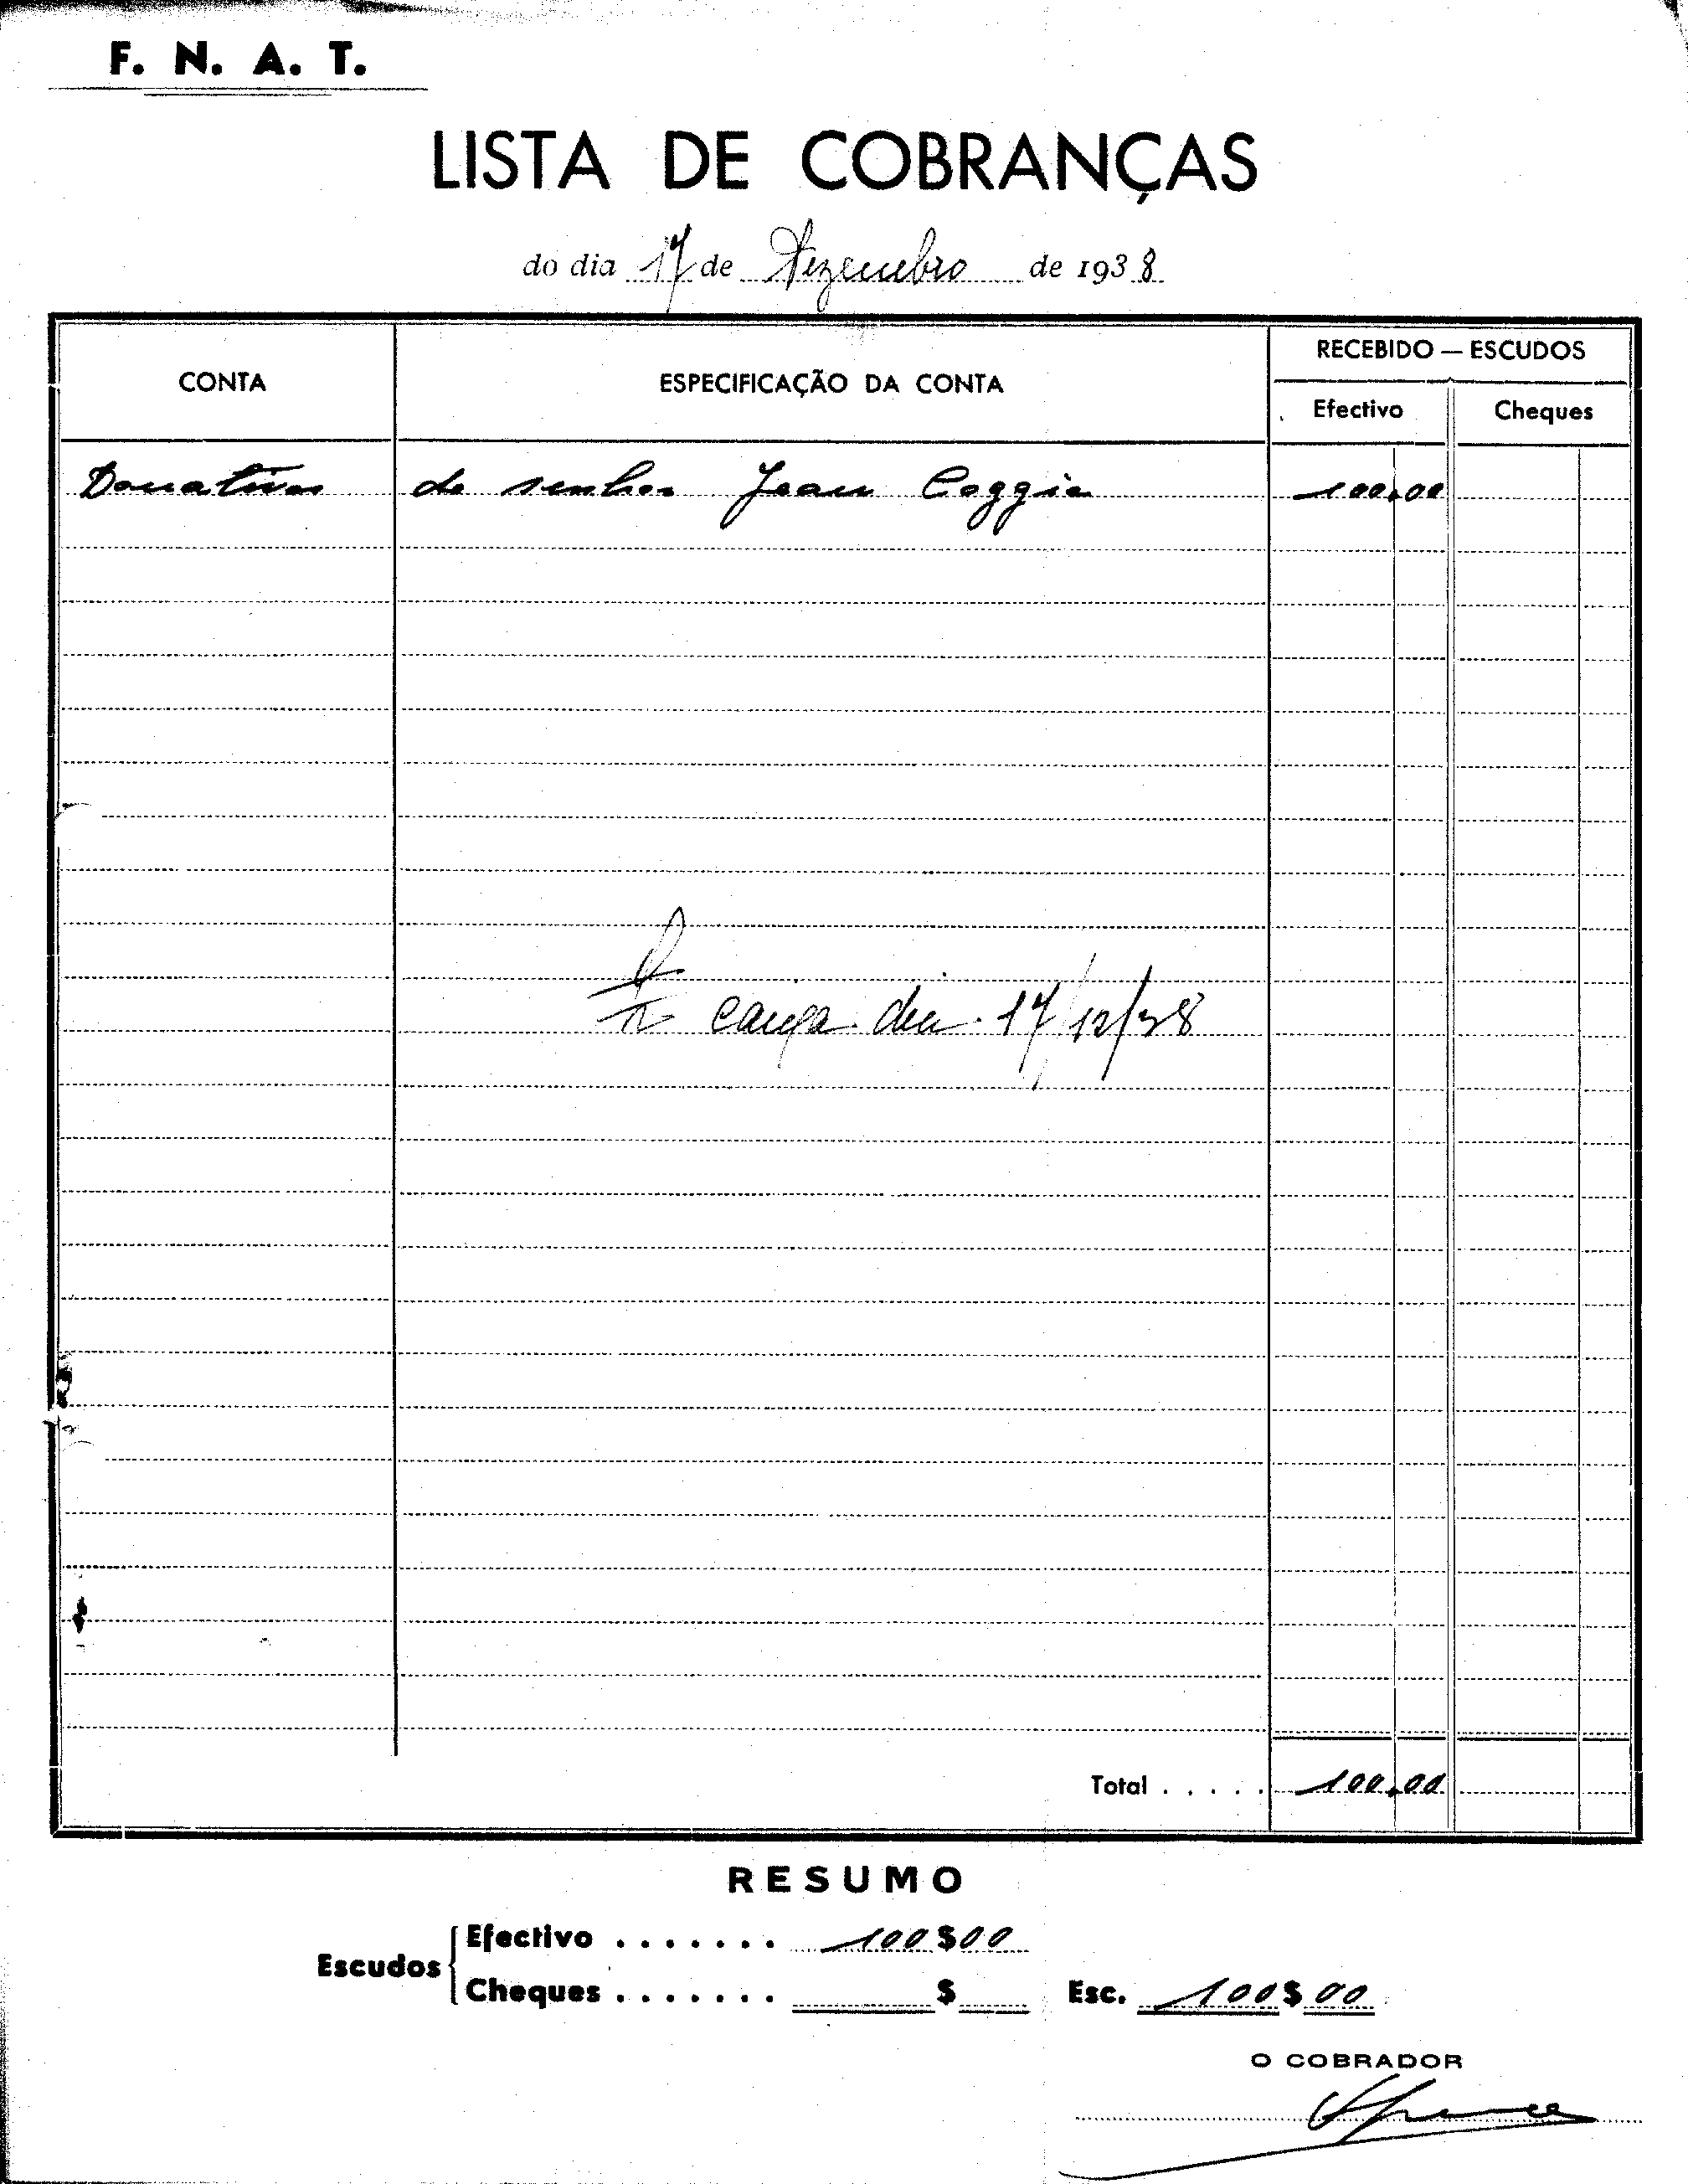 F. N. A. T.
LISTA DE COBRANÇAS
do dia 17 de Dezembro de 1938
CONTA ESPECIFICAÇÃO DA CONTA RECEBIDO — ESCUDOS
Efectivo Cheques
Donativos do senhor Jean Coggia 100.00
dia 17/12/38
Total . . . . . 100.00
RESUMO
Escudos
Efectivo . . . . . . . 100$00
Cheques . . . . . . . $ Esc. 100$00
O COBRADOR